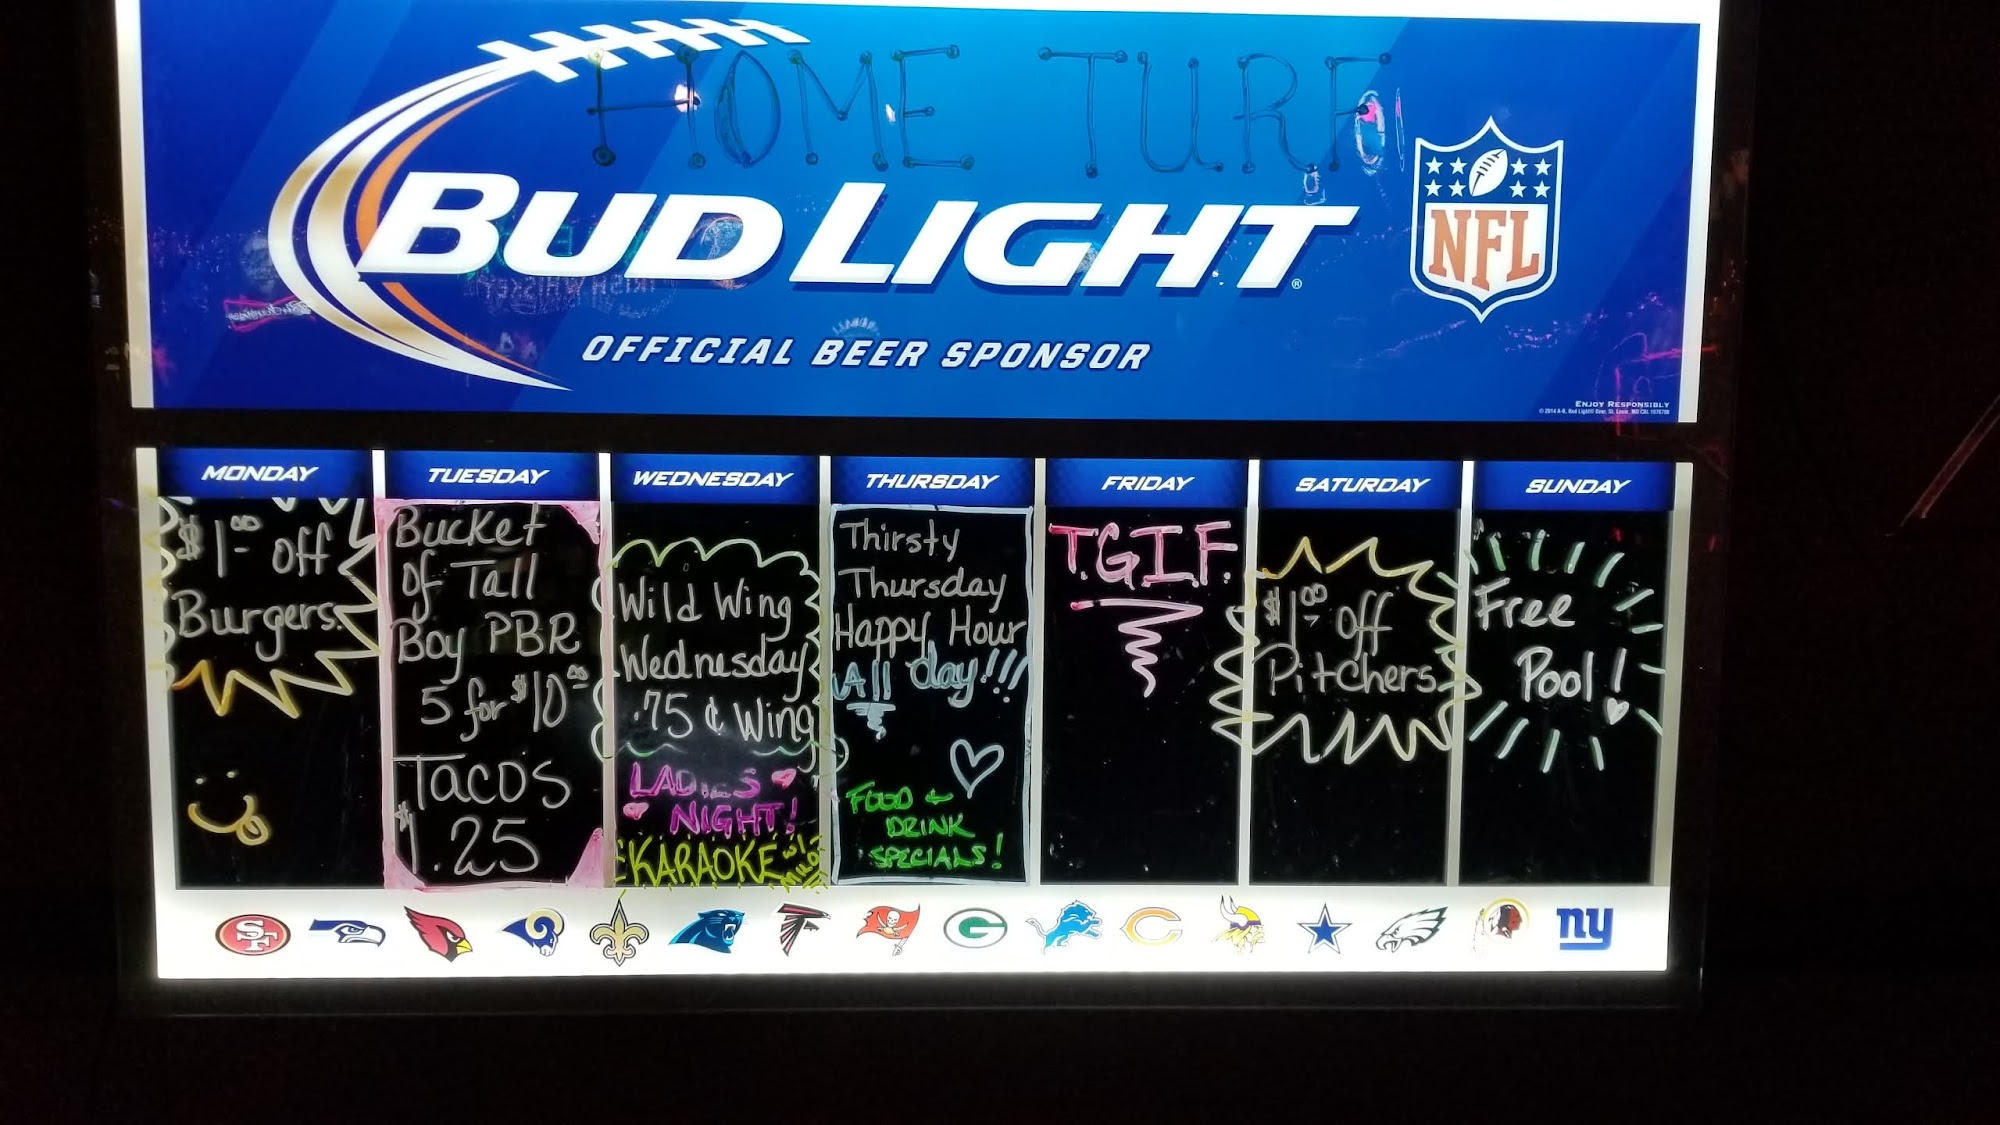 HOME TURF
BUD LIGHT®
OFFICIAL BEER SPONSOR
NFL
ENJOY RESPONSIBLY
MONDAY
$1.00 off
Burgers.
TUESDAY
Bucket
of Tall
Boy PBR
5 for $10.00
TACOS
$1.25
WEDNESDAY
Wild Wing
Wednesday
.75 ¢ Wing
LADIES
NIGHT!
KARAOKE w/
THURSDAY
Thirsty
Thursday
Happy Hour
All day!!!
FOOD +
DRINK
SPECIALS!
FRIDAY
T.G.I.F.
SATURDAY
$1.00 off
Pitchers
SUNDAY
Free
Pool!
SF
G
C
ny